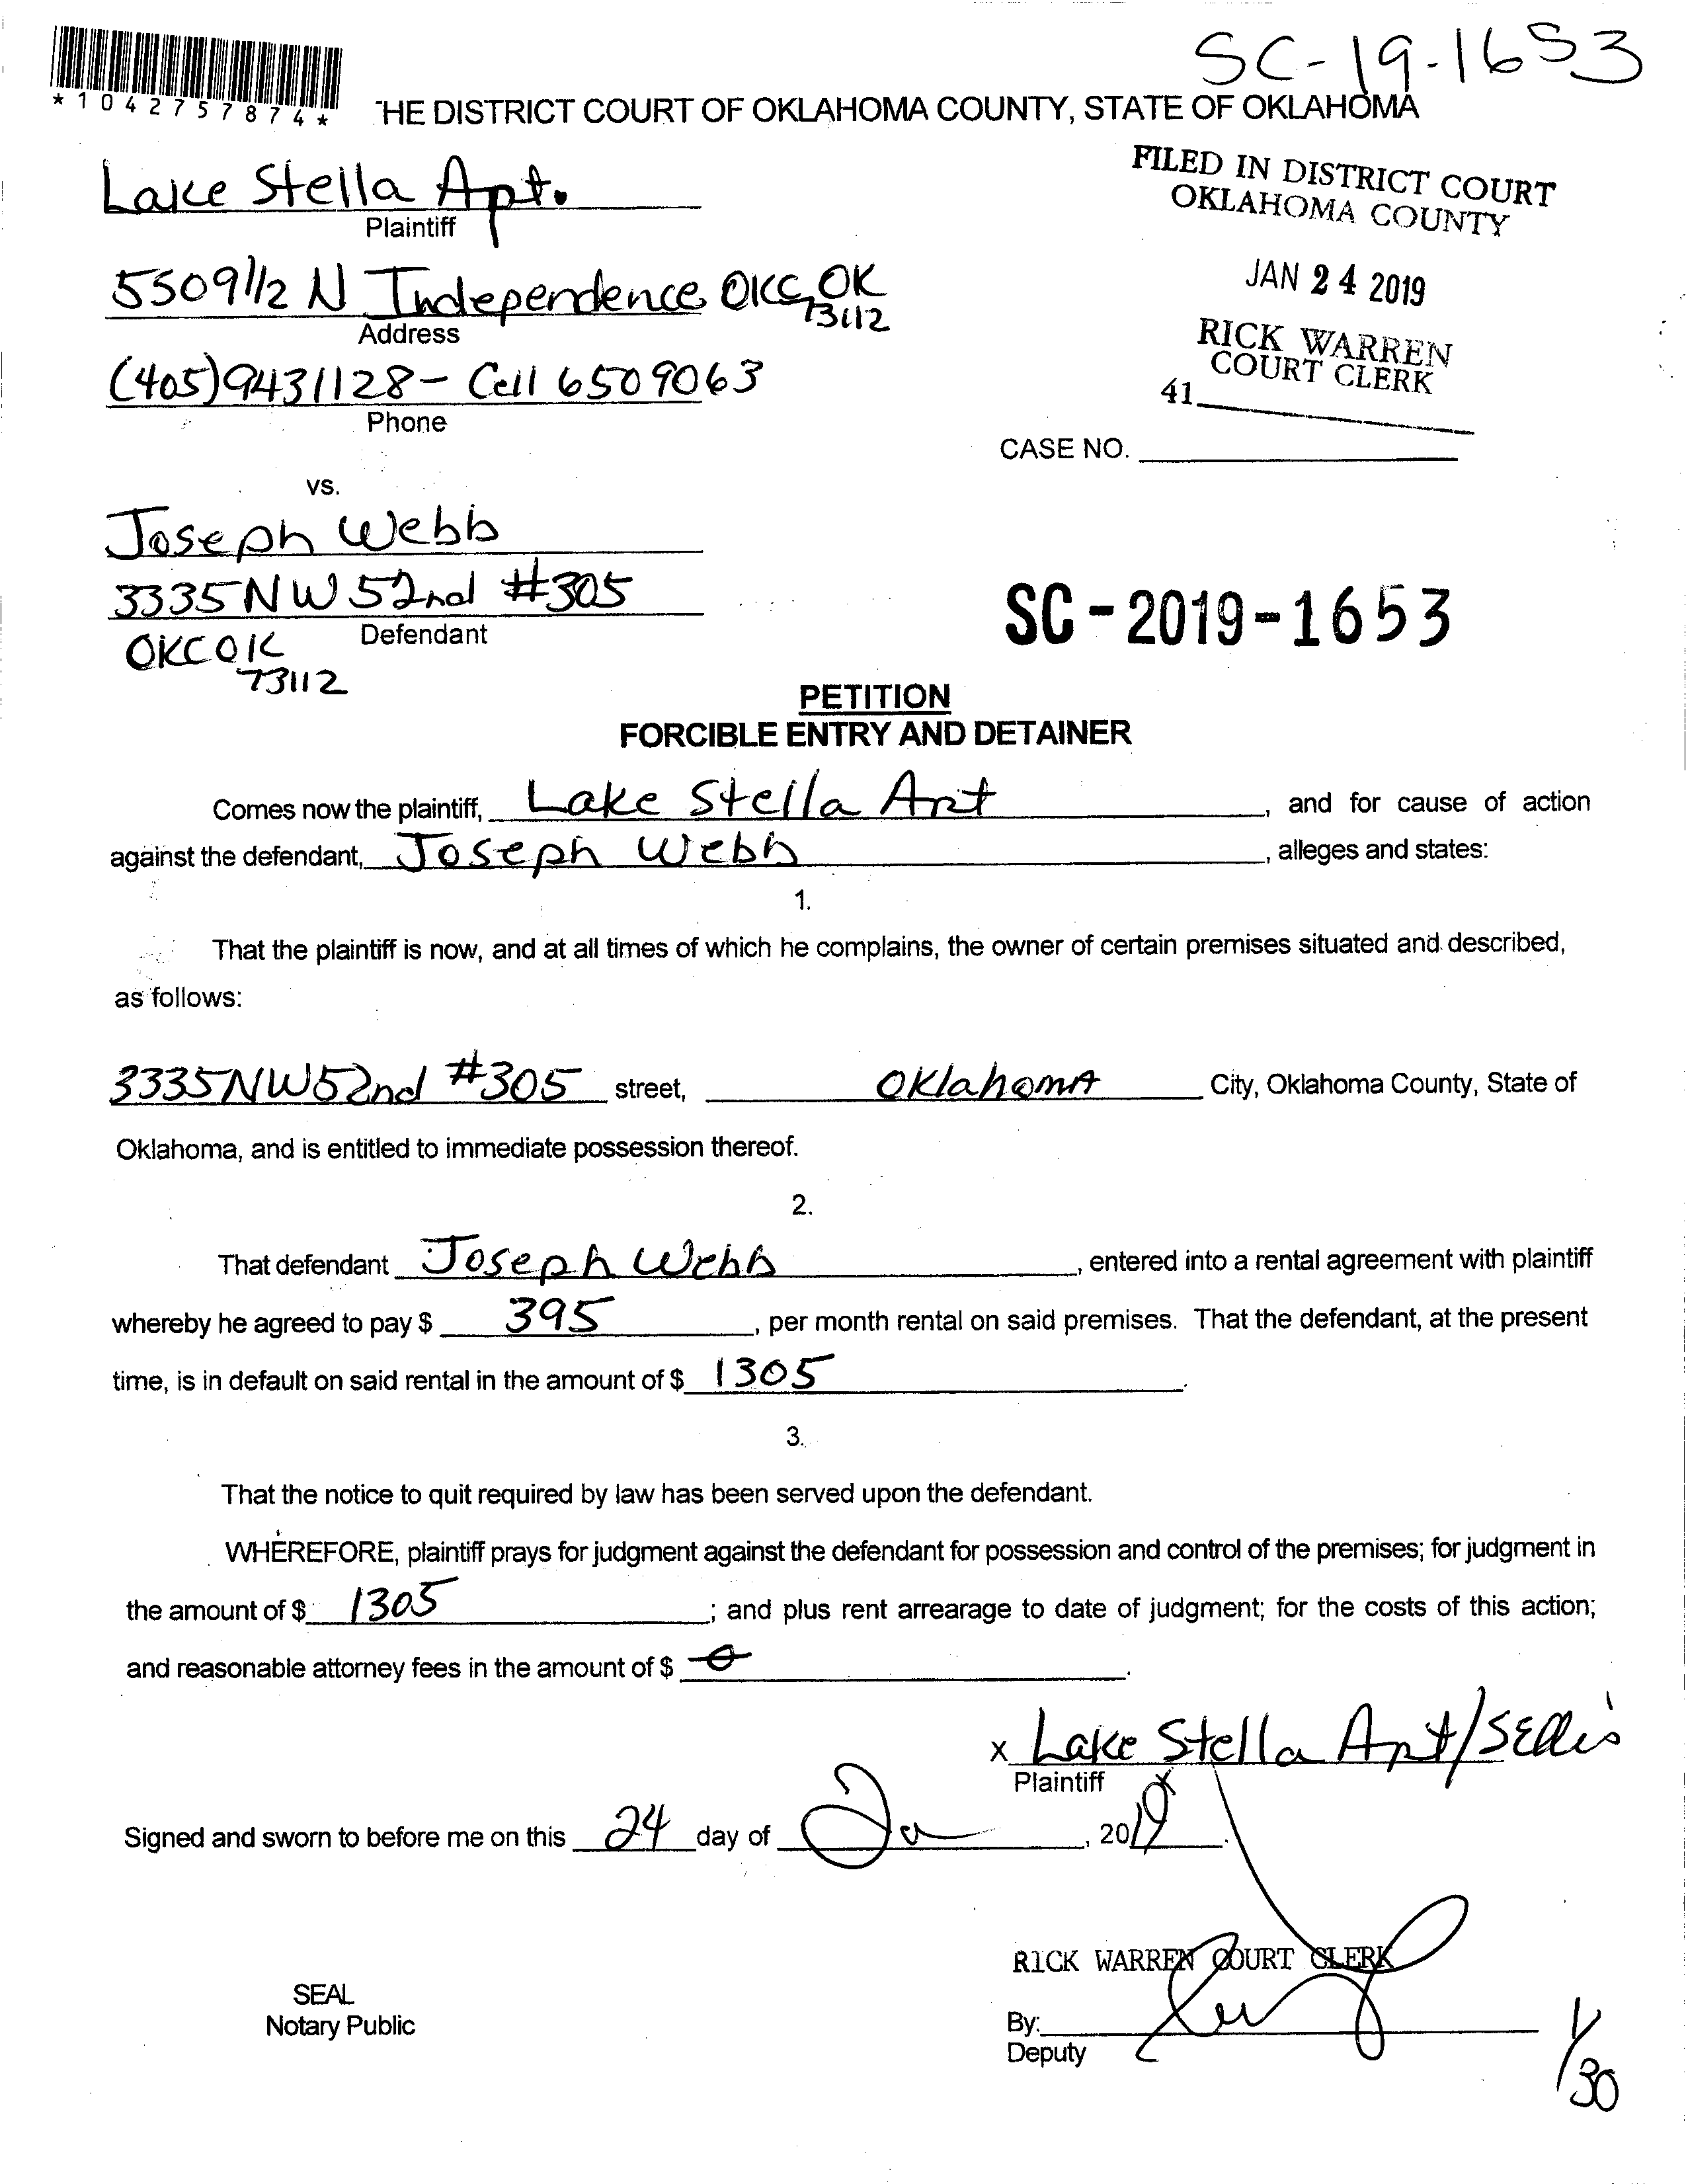 SC-19-1653
*1042757874*
HE DISTRICT COURT OF OKLAHOMA COUNTY, STATE OF OKLAHOMA
Lake Stella Apt.
Plaintiff
5509 1/2 N Independence OKC, OK
73112
Address
(405)9431128- Cell 6509063
Phone
FILED IN DISTRICT COURT
OKLAHOMA COUNTY
JAN 24 2019
RICK WARREN
COURT CLERK
41
CASE NO.
vs.
Joseph Webb
3335 NW 52nd #305
Defendant
OKC OK
73112
SC-2019-1653
PETITION
FORCIBLE ENTRY AND DETAINER
Comes now the plaintiff, Lake Stella Apt, and for cause of action
against the defendant, Joseph Webb, alleges and states:
1.
That the plaintiff is now, and at all times of which he complains, the owner of certain premises situated and described,
as follows:
3335 NW 52nd #305 street, Oklahoma City, Oklahoma County, State of
Oklahoma, and is entitled to immediate possession thereof.
2.
That defendant Joseph Webb, entered into a rental agreement with plaintiff
whereby he agreed to pay $ 395, per month rental on said premises. That the defendant, at the present
time, is in default on said rental in the amount of $ 1305.
3.
That the notice to quit required by law has been served upon the defendant.
WHEREFORE, plaintiff prays for judgment against the defendant for possession and control of the premises; for judgment in
the amount of $ 1305; and plus rent arrearage to date of judgment; for the costs of this action;
and reasonable attorney fees in the amount of $ 0.
x Lake Stella Apt/SEllis
Plaintiff
Signed and sworn to before me on this 24 day of Ja, 2019.
RICK WARREN COURT CLERK
SEAL
Notary Public
By:
Deputy
1/30